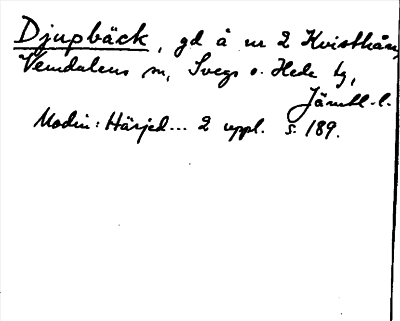 Djupbäck, gd å nr 2 Kvisthån,
Vemdalens sn, Svegs o. Hede tg,
Jämtl. l.
Modin: Härjed... 2 uppl. s. 189.